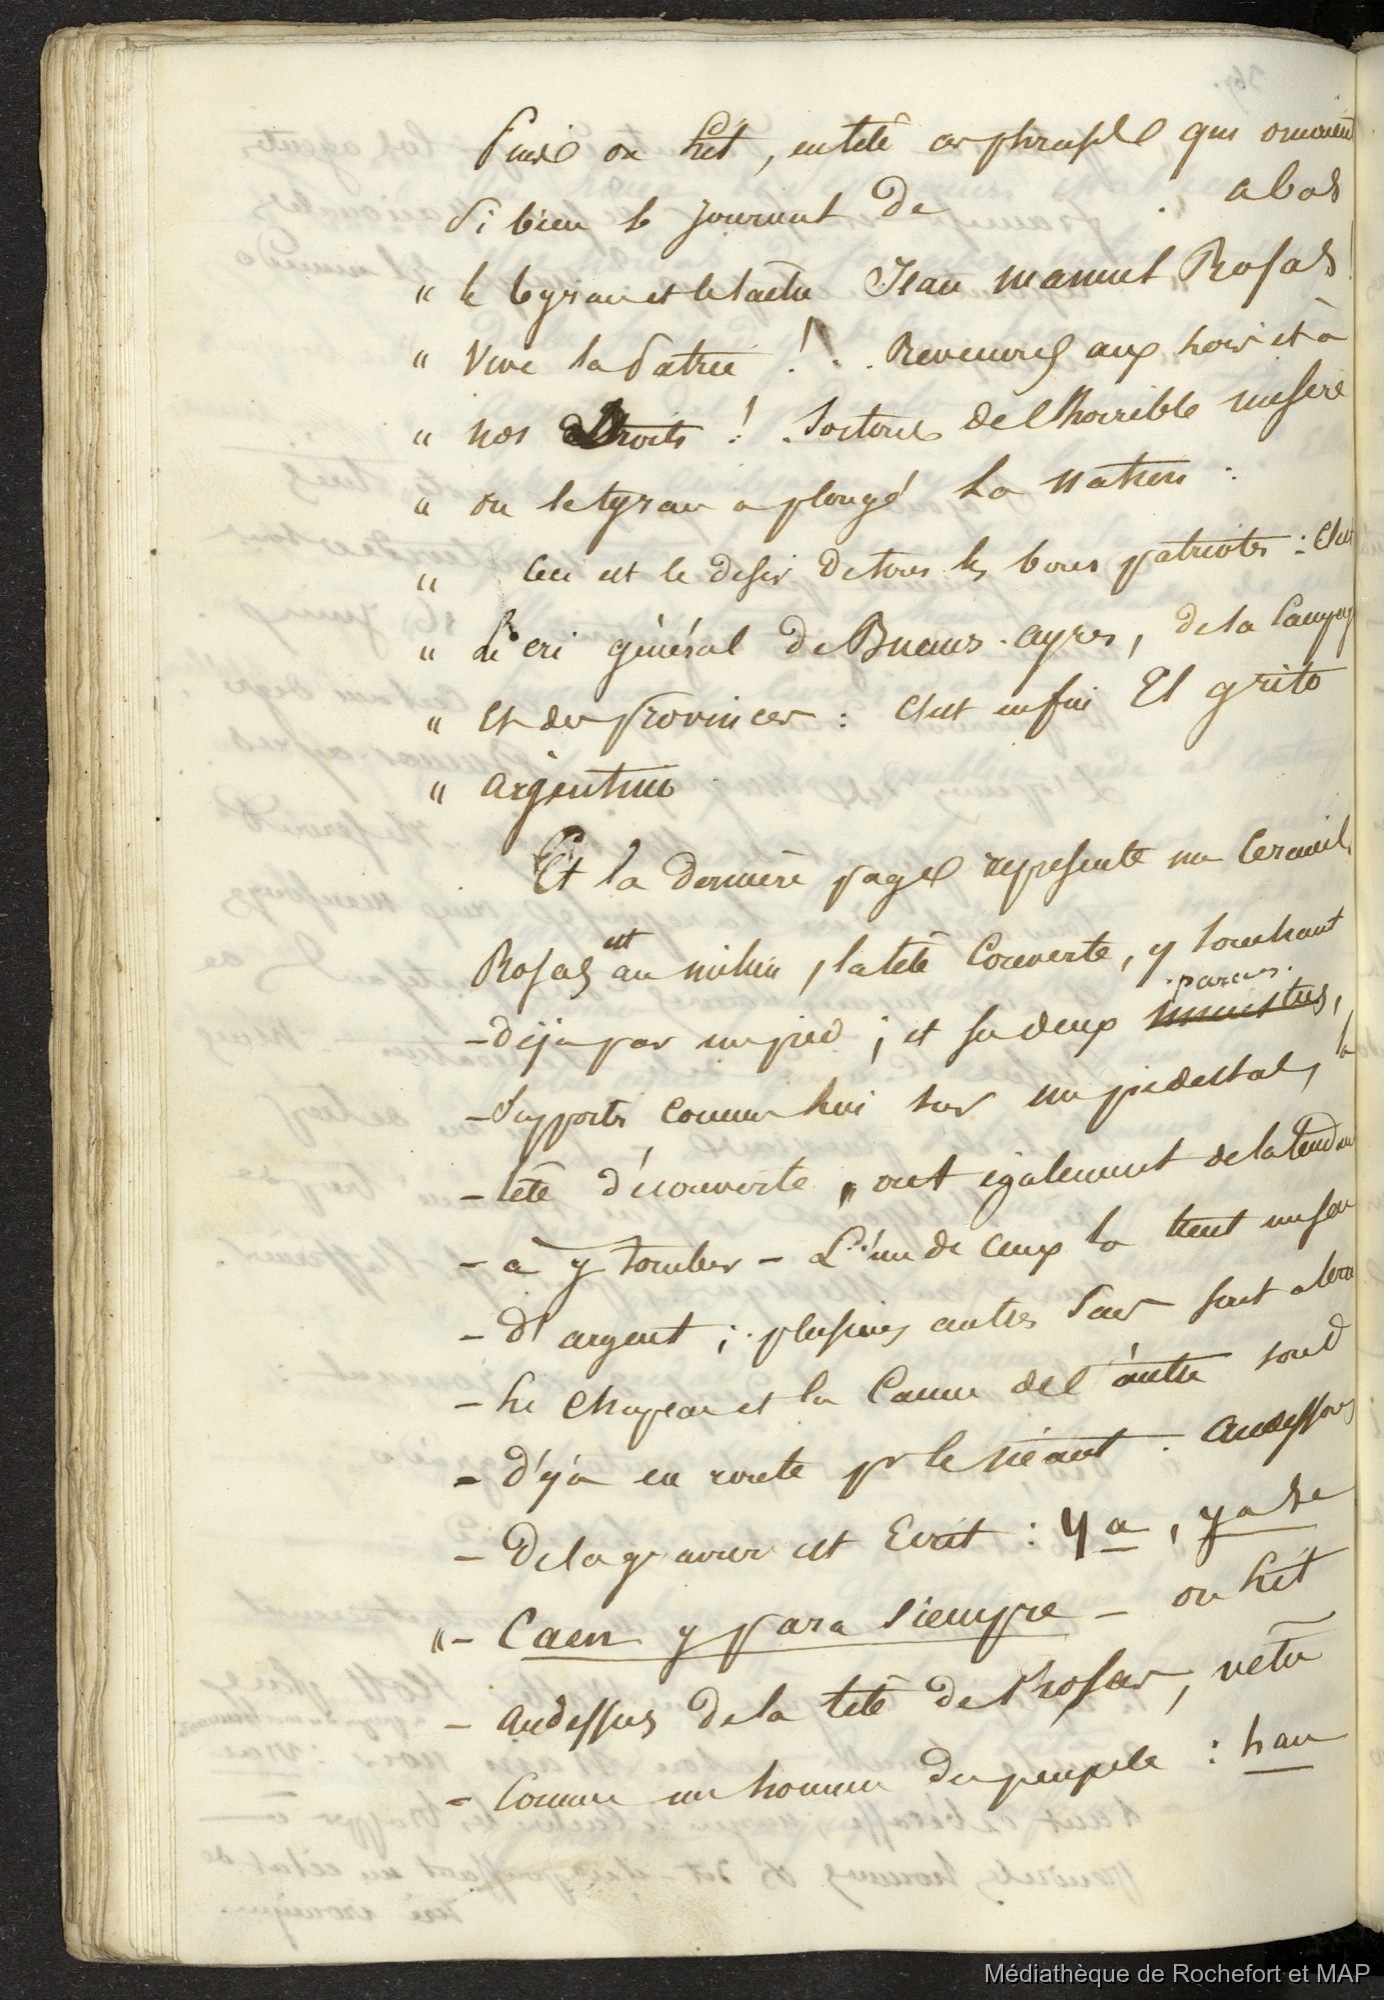 Puis on lit, en tête ces phrases qui ornaient
si bien le journal de . abas
" le tyran et le traître Jean manuel Rosas
" Vive la Patrie ! . . Revenons aux lois et à
" nos Droits ! . Sortons de l'horrible misère
" ou le tyran a plongé la nation :
" Ceci est le desir de tous les bons patriotes : C'est
" le cri général de Buenos-ayres, de la Campag
" et des provinces : c'est enfin El grito
" argentino
Et la dernière page représente un Cercueil,
Rosas est au milieu, la tête Couverte, y touchant
- déja par un pied ; et ses deux parens,
- Supports comme lui sur un piedestal, la
- tête découverte, ont également de la tendan
- à y tomber - L'un de ceux la tient un sac
- d'argent ; plusieurs autres sacs sont a terre
- le Chapeau et la Canne de l'autre sont
- déja en route pr le néant . Audessous
- de la gravure est Ecrit : ya, ya se
"- Caen y para siempre - on lit
- audessus de la tête de Rosas, vetu
- Comme un homme du peuple : han
Médiathèque de Rochefort et MAP